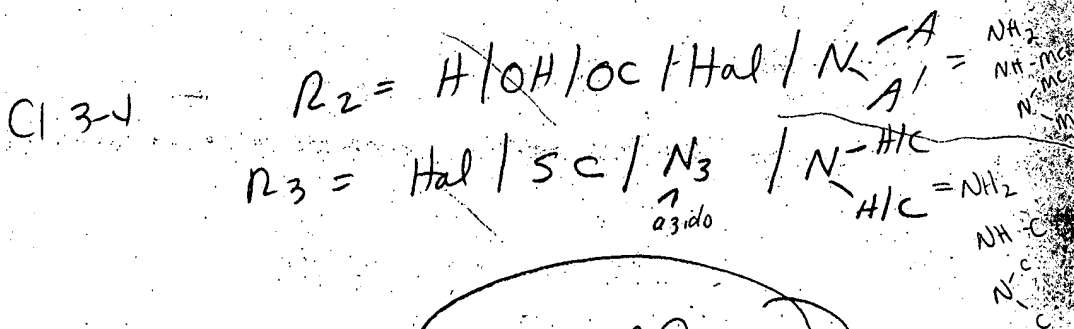 Cl 3-4 R2 = H/OH/OC/Hal/N-A A' = NH2
NH-Me
N-Me
R3 = Hal/SC/N3/N-H/C H/C = NH2
azido
NH-C
N-C
C